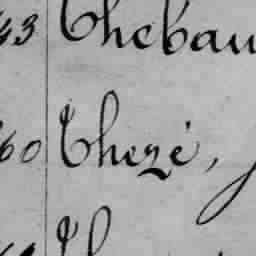 43 Thébau
60 Thezé,